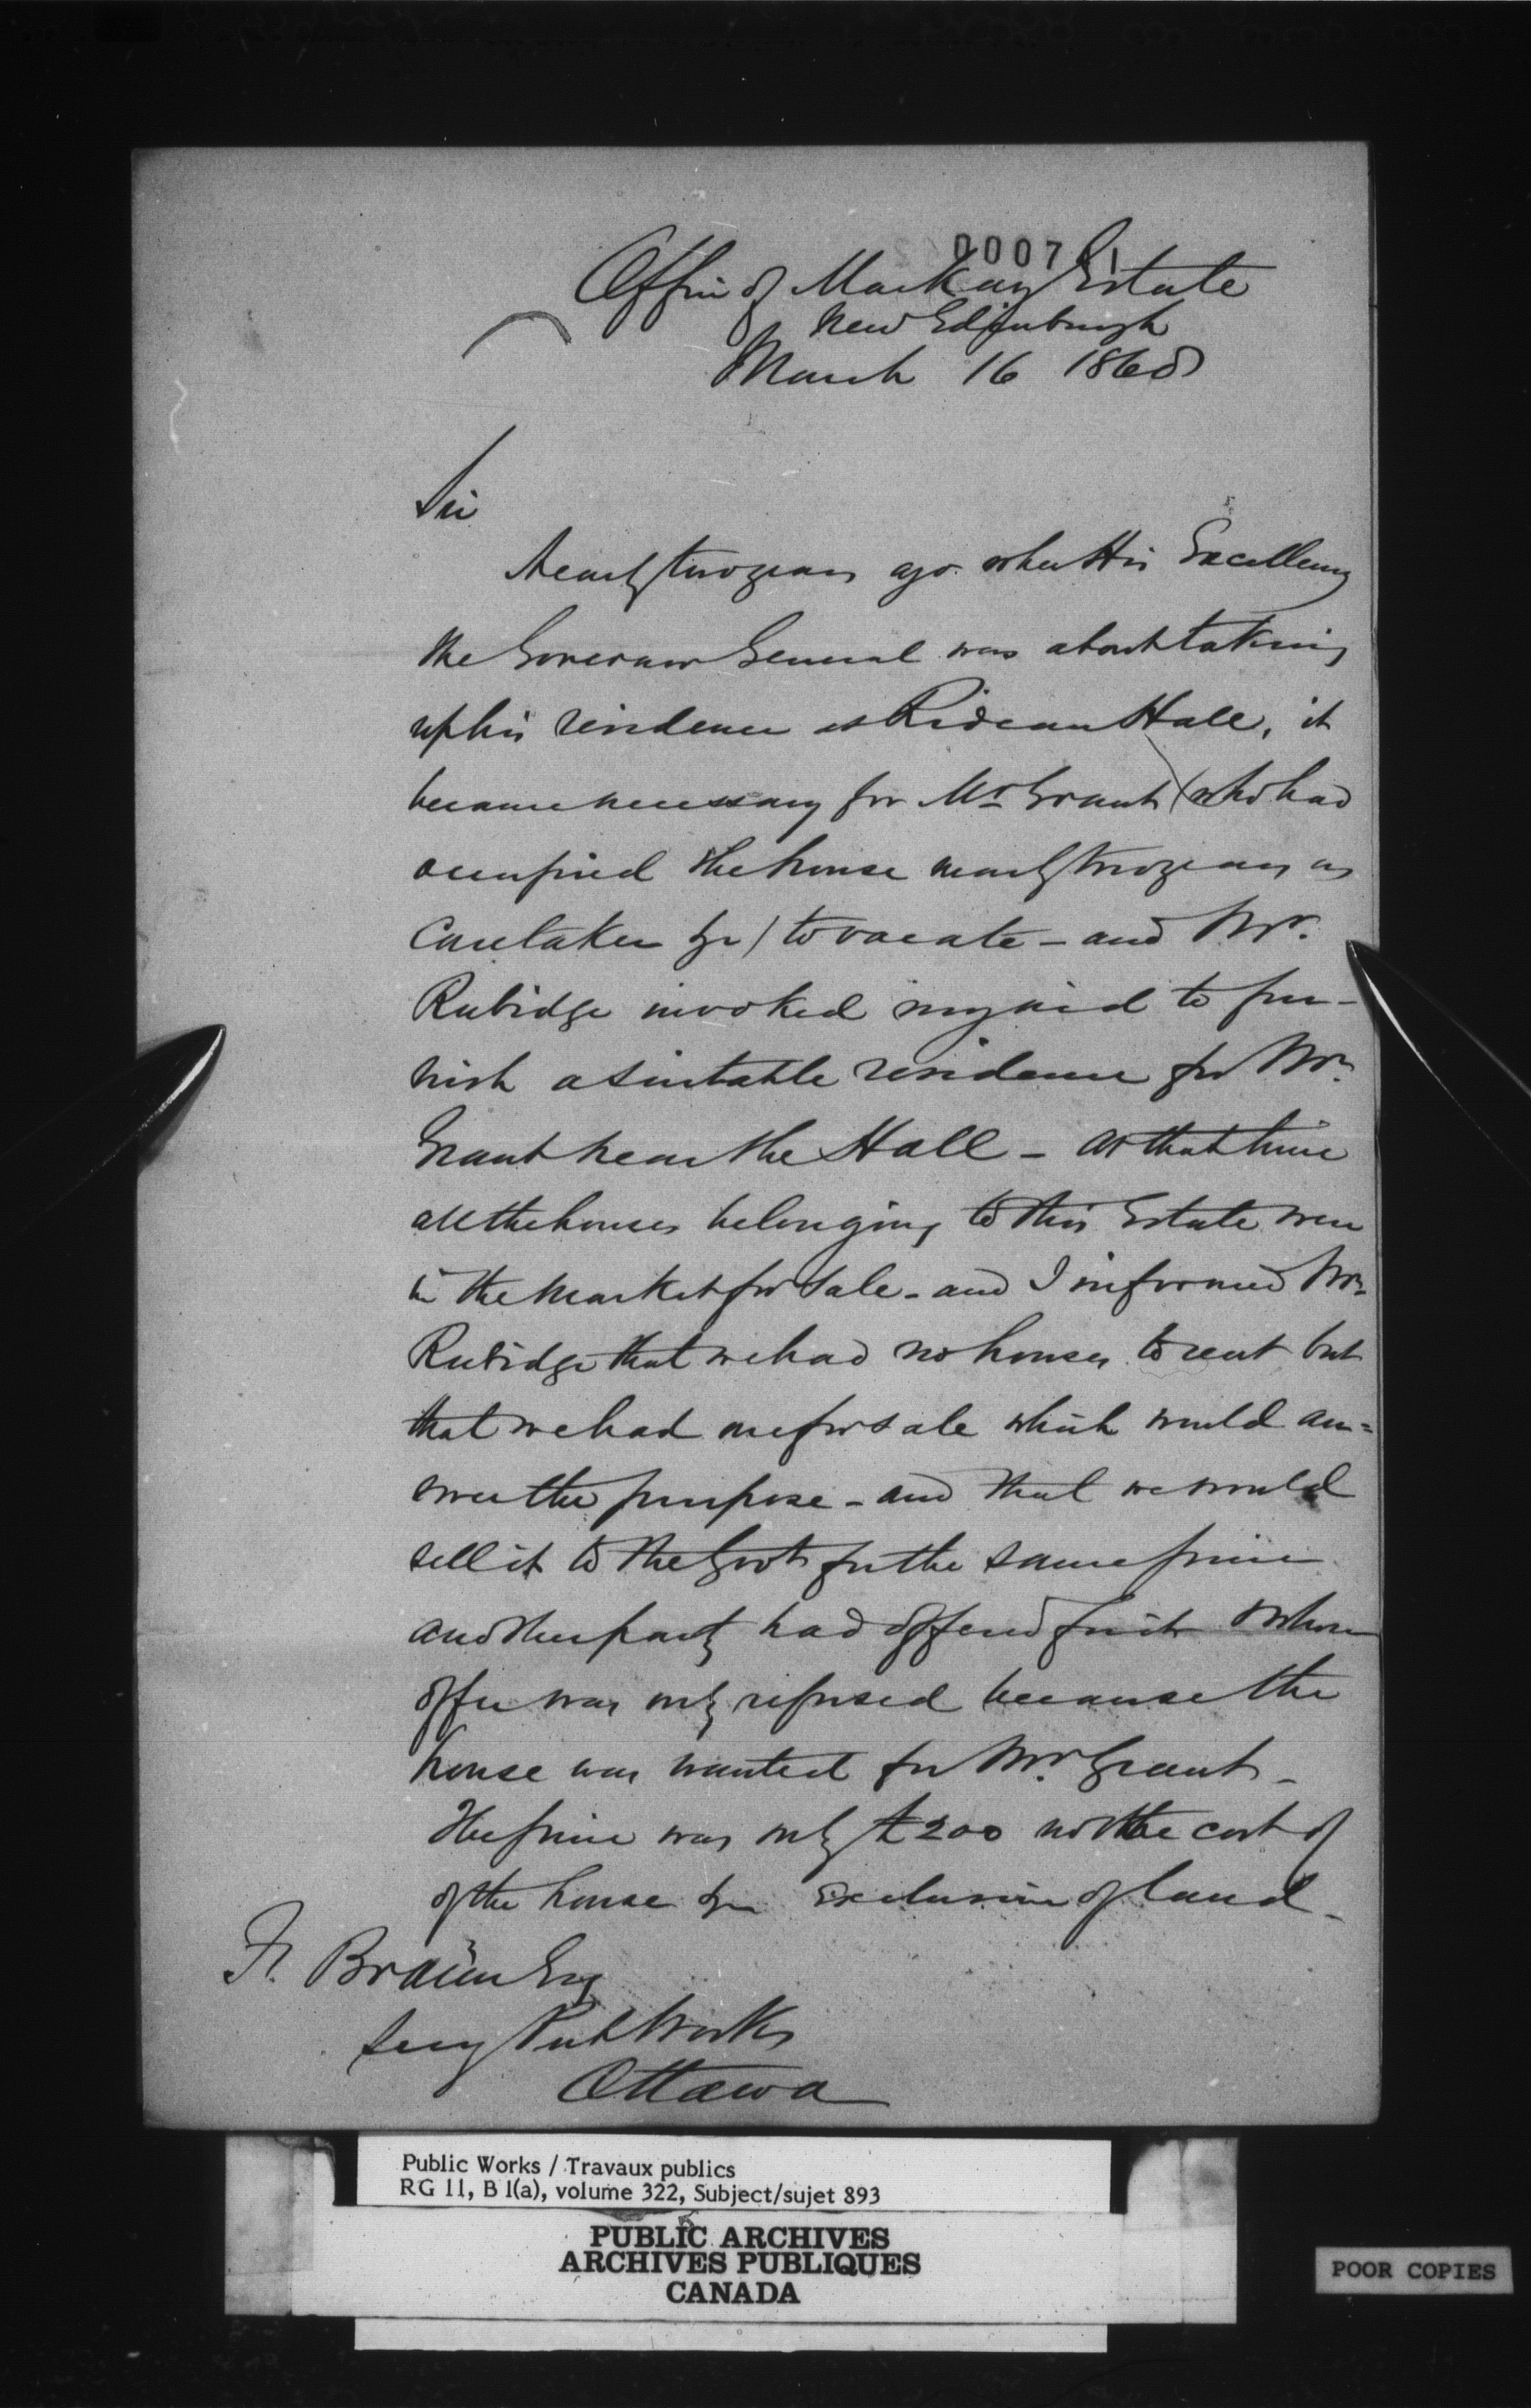 000741
Office of MacKay Estate
New Edinburgh
March 16 1868
Sir
Nearly two years ago when His Excellency
the Governor General was about taking
up his residence at Rideau Hall, it
became necessary for Mr Grant (who had
occupied the house nearly two years as
Caretaker &c) to vacate - and Mr.
Rubidge invoked my aid to fur-
nish a suitable residence for Mr.
Grant near the Hall - At that time
all the houses belonging to this Estate were
in the market for sale - and I informed Mr.
Rubidge that we had no houses to rent but
that we had one for sale which would an=
swer the purpose - and that we would
sell it to the Govt for the same price
another party had offered for it & whose
offer was only refused because the
house was wanted for Mr. Grant -
The price was only £200 not the cost of
of the house &c exclusive of land -
Fr. Braün Esq
Secy Pub Works
Ottawa
Public Works / Travaux publics
RG 11, B 1(a), volume 322, Subject/sujet 893
PUBLIC ARCHIVES
ARCHIVES PUBLIQUES
CANADA
POOR COPIES